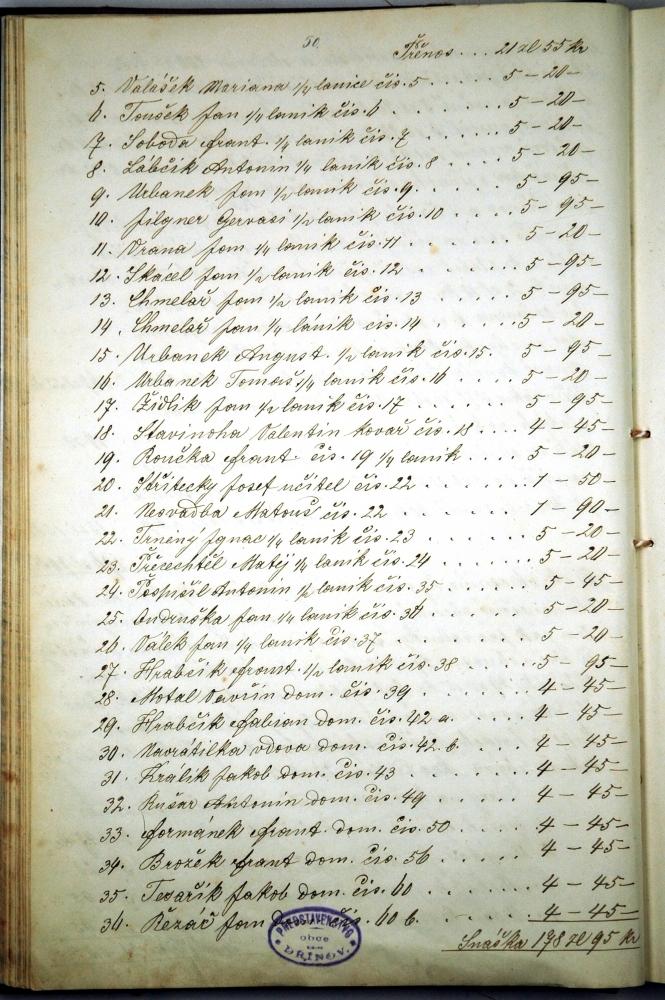 50.
Přenos . . . 21 zl 55 kr
5. Valášek Mariana 1/4 lanice čís. 5 . . . . . 5 – 20 –
6. Touček Jan 1/4 lanik čís. 6 . . . . . 5 – 20 –
7. Soboda Frant. 1/4 lanik čís. 7 . . . . . 5 – 20 –
8. Lábčík Antonin 1/4 lanik čís. 8 . . . . . 5 – 20 –
9. Urbanek Jan 1/2 lanik čís. 9. . . . . . 5 – 95 –
10. Jilgner Gervasi 1/2 lanik čís. 10 . . . . 5 – 95 –
11. Vrana Jan 1/4 lanik čís. 11 . . . . . . 5 – 20 –
12. Skácel Jan 1/2 lanik čís. 12 . . . . . . 5 – 95 –
13. Chmelař Jan 1/2 lanik čís. 13 . . . . . 5 – 95 –
14. Chmelař Jan 1/4 lánik cis. 14 . . . . . 5 – 20 –
15. Urbanek August. 1/2 lanik čís. 15. 5 – 95 –
16. Urbanek Tomaš 1/4 lanik čís. 16 . . . . 5 – 20 –
17. Židlik Jan 1/2 lanik čís. 17 . . . . . . 5 – 95 –
18. Stavinoha Valentin kovář čís. 18 . . . . 4 – 45 –
19. Roučka Frant. čís. 19 1/4 lanik . . . . 5 – 20 –
20. Střitecky Josef učitel čís. 22 . . . . . 1 – 50 –
21. Nevadba Matouš čís. 22 . . . . . . 1 – 90 –
22. Trneny Ignac 1/4 lanik čís. 23 . . . . . 5 – 20 –
23. Přecechtěl Matěj 1/4 lanik čís. 24 . . . . . 5 – 20 –
24. Pospíšil Antonin 1/2 lanik čís. 35 . . . . . 5 – 45 –
25. Andruška Jan 1/4 lanik čís. 34 . . . . . 5 – 20 –
26. Válek Jan 1/4 lanik čís. 37 . . . . . . 5 – 20 –
27. Hrabčík Frant. 1/2 lanik čís. 38 . . . . . 5 – 95 –
28. Motal Vavřín dom. čís. 39 . . . . . . 4 – 45 –
29. Hrabčík Fabian dom. čís. 42 a. . . . . 4 – 45 –
30. Navratilka vdova dom. čís. 42. b. . . . . 4 – 45 –
31. Králik Jakob dom. čís. 43 . . . . . . 4 – 45 –
32. Kušar Antonin dom. čís. 49 . . . . . . 4 – 45 –
33. Formánek Frant. dom. čís. 50 . . . . . 4 – 45 –
34. Brožek Frant dom. čís. 56 . . . . . . 4 – 45 –
35. Tesařik Jakob dom. čís. 60 . . . . . . 4 – 45 –
36. Řezáč Jan čís. 60 b. . . . . . . 4 – 45 –
PŘEDSTAVENSTVO
obce
DŘÍNOV.
Snáška 178 zl 95 kr